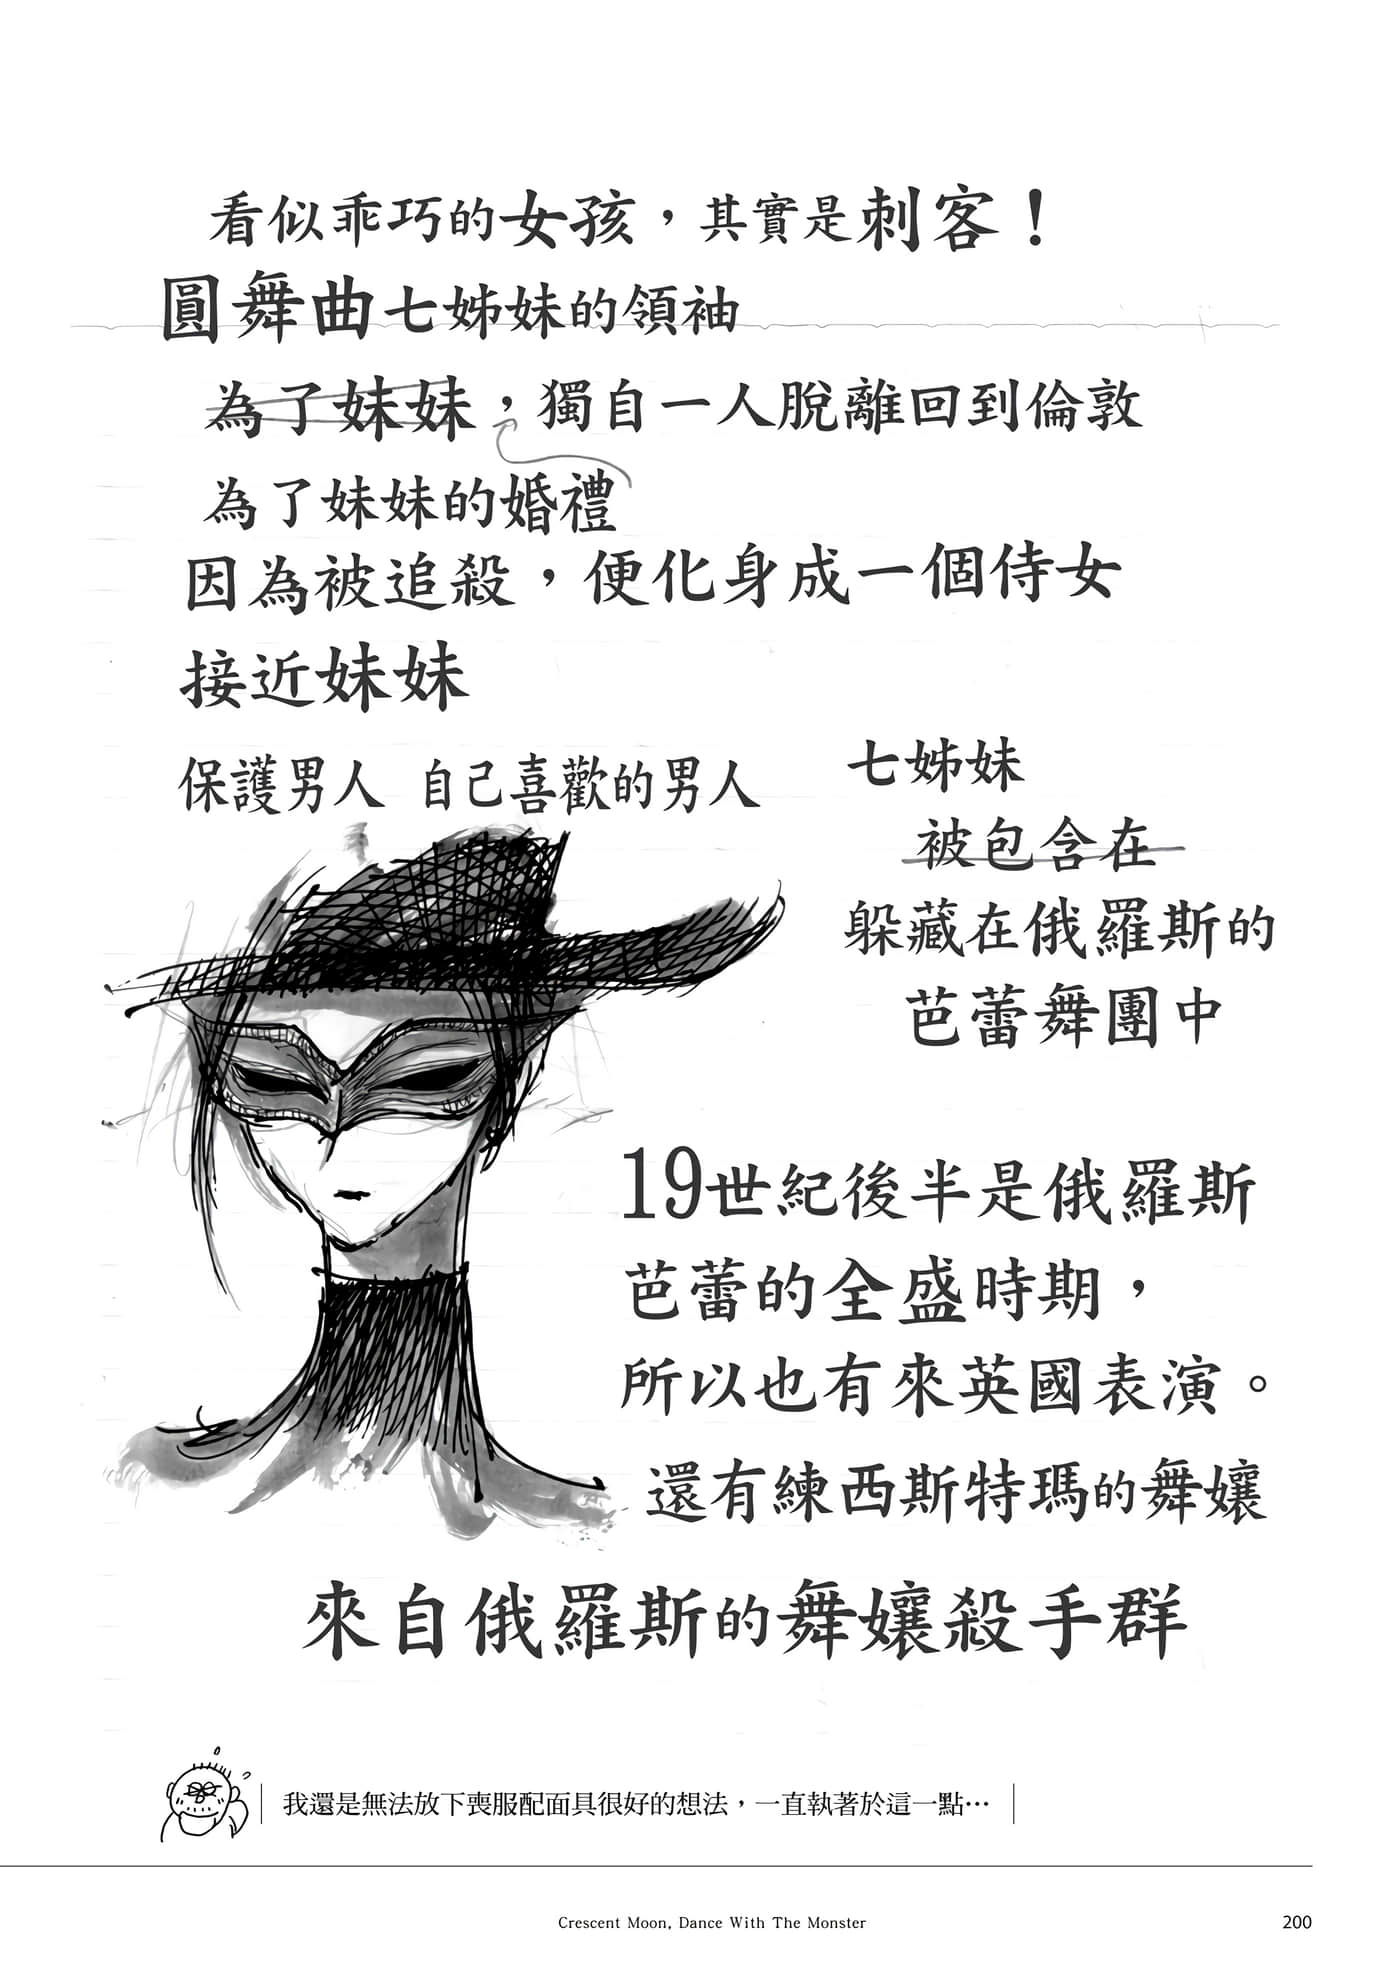 看似乖巧的女孩，其實是刺客！
圓舞曲七姊妹的領袖
為了妹妹，獨自一人脫離回到倫敦
為了妹妹的婚禮
因為被追殺，便化身成一個侍女
接近妹妹
保護男人 自己喜歡的男人
七姊妹
被包含在
躲藏在俄羅斯的
芭蕾舞團中
19世紀後半是俄羅斯
芭蕾的全盛時期，
所以也有來英國表演。
還有練西斯特瑪的舞孃
來自俄羅斯的舞孃殺手群
我還是無法放下喪服配面具很好的想法，一直執著於這一點…
Crescent Moon, Dance With The Monster
200